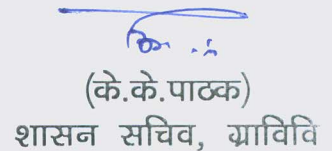 (के.के.पाठक)
शासन सचिव, ग्राविवि